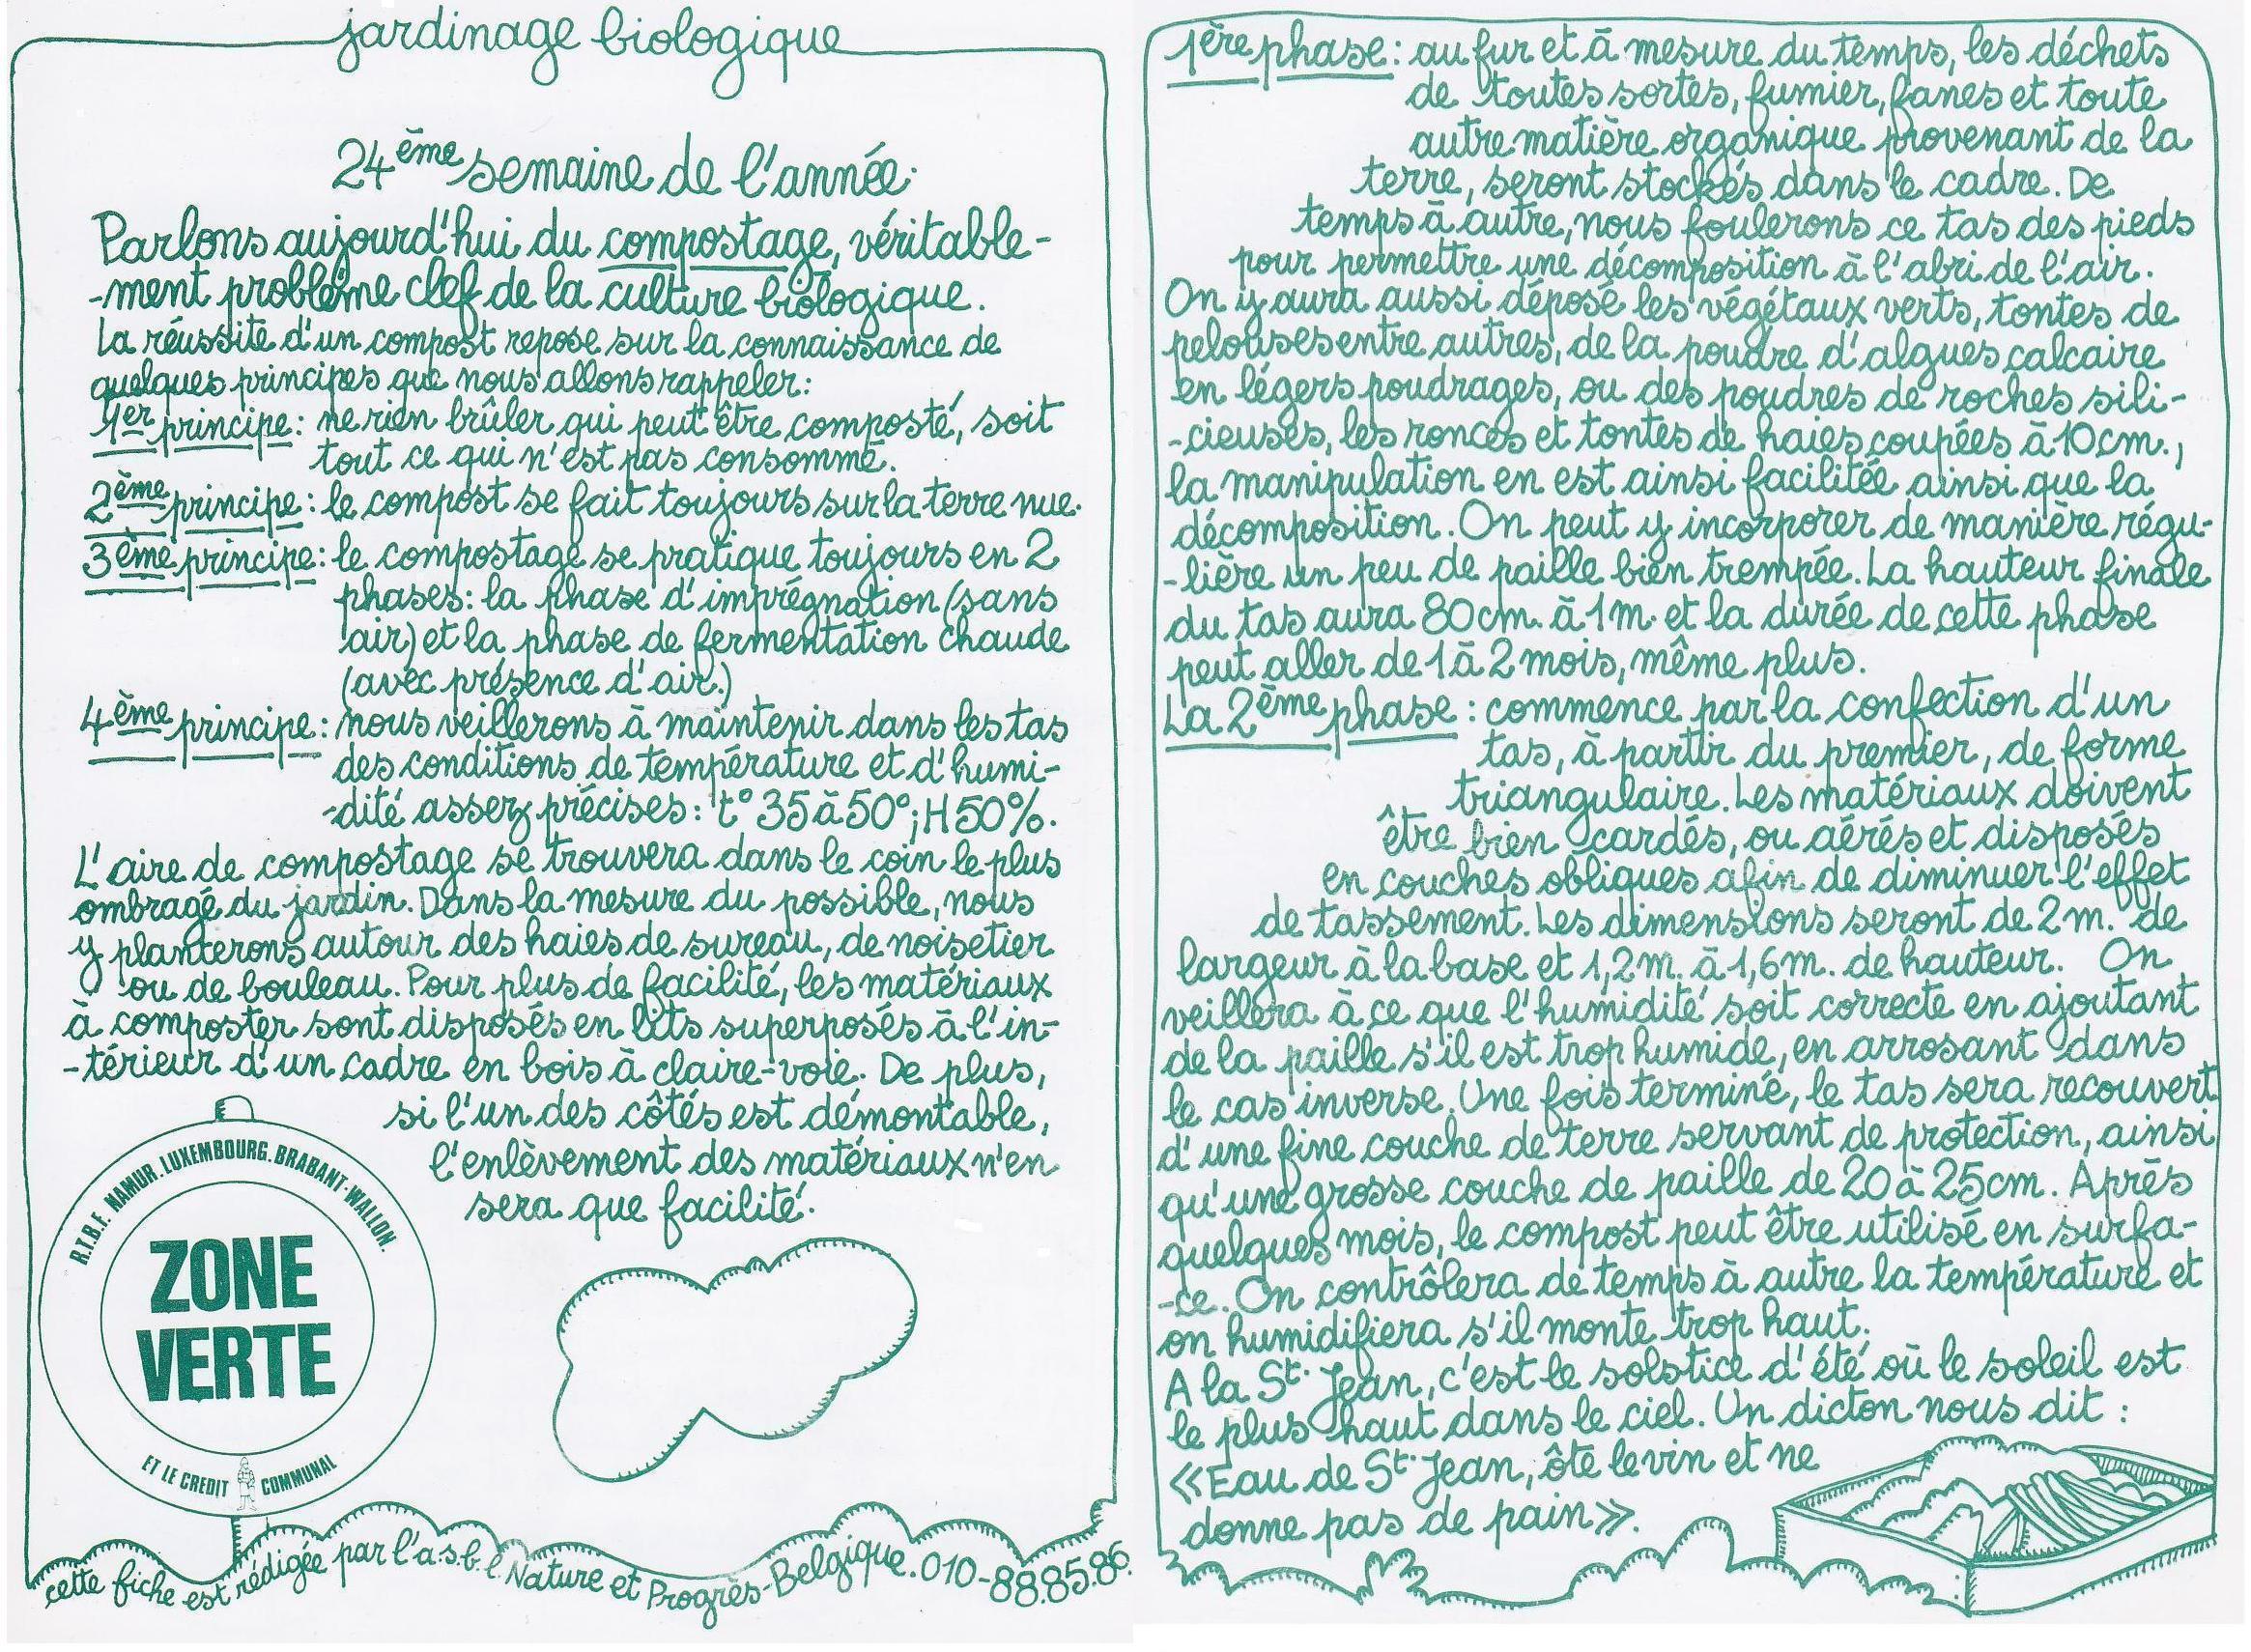 jardinage biologique
24ème semaine de l'année.
Parlons aujourd'hui du compostage, véritable-
-ment problème clef de la culture biologique.
La réussite d'un compost repose sur la connaissance de
quelques principes que nous allons rappeler:
1er principe: ne rien brûler qui peut être composté, soit
tout ce qui n'est pas consommé.
2ème principe: le compost se fait toujours sur la terre nue.
3ème principe: le compostage se pratique toujours en 2
phases: la phase d'imprégnation (sans
air) et la phase de fermentation chaude
(avec présence d'air.)
4ème principe: nous veillerons à maintenir dans les tas
des conditions de température et d'humi-
-dité assez précises: t° 35 à 50°; H 50%.
L'aire de compostage se trouvera dans le coin le plus
ombragé du jardin. Dans la mesure du possible, nous
y planterons autour des haies de sureau, de noisetier
ou de bouleau. Pour plus de facilité, les matériaux
à composter sont disposés en lits superposés à l'in-
-térieur d'un cadre en bois à claire-voie. De plus,
si l'un des côtés est démontable,
l'enlèvement des matériaux n'en
sera que facilité.
R.T.B.F. NAMUR. LUXEMBOURG. BRABANT-WALLON.
ZONE
VERTE
ET LE CREDIT COMMUNAL
cette fiche est rédigée par l'a.s.b.l. Nature et Progrès-Belgique. 010-88.85.86.
1ère phase: au fur et à mesure du temps, les déchets
de toutes sortes, fumier, fanes et toute
autre matière organique provenant de la
terre, seront stockés dans le cadre. De
temps à autre, nous foulerons ce tas des pieds
pour permettre une décomposition à l'abri de l'air.
On y aura aussi déposé les végétaux verts, tontes de
pelouses entre autres, de la poudre d'algues calcaire
en légers poudrages, ou des poudres de roches sili-
-cieuses, les ronces et tontes de haies coupées à 10cm.,
la manipulation en est ainsi facilitée ainsi que la
décomposition. On peut y incorporer de manière régu-
-lière un peu de paille bien trempée. La hauteur finale
du tas aura 80cm. à 1m. et la durée de cette phase
peut aller de 1 à 2 mois, même plus.
La 2ème phase: commence par la confection d'un
tas, à partir du premier, de forme
triangulaire. Les matériaux doivent
être bien cardés, ou aérés et disposés
en couches obliques afin de diminuer l'effet
de tassement. Les dimensions seront de 2m. de
largeur à la base et 1,2m. à 1,6m. de hauteur. On
veillera à ce que l'humidité soit correcte en ajoutant
de la paille s'il est trop humide, en arrosant dans
le cas inverse. Une fois terminé, le tas sera recouvert
d'une fine couche de terre servant de protection, ainsi
qu'une grosse couche de paille de 20 à 25cm. Après
quelques mois, le compost peut être utilisé en surfa-
-ce. On contrôlera de temps à autre la température et
on humidifiera s'il monte trop haut.
A la St. Jean, c'est le solstice d'été où le soleil est
le plus haut dans le ciel. Un dicton nous dit :
«Eau de St. Jean, ôte le vin et ne
donne pas de pain».